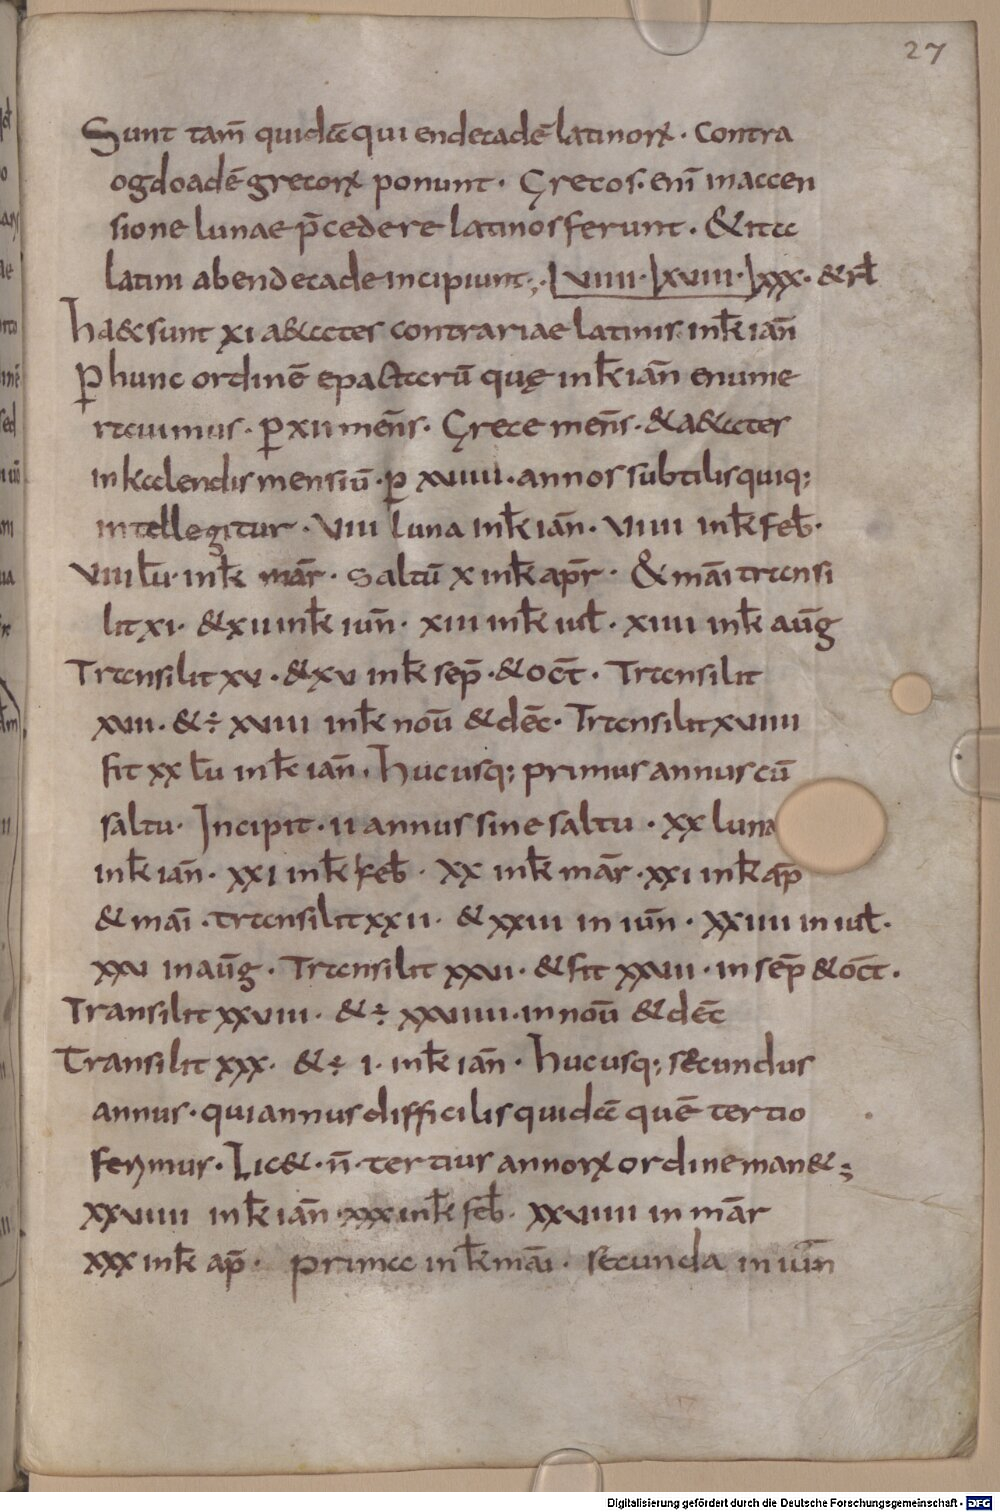 27
Sunt tam̄ quidā qui endecadē latinoꝝ · contra
ogdoadē grecoꝝ ponunt · Grecos · eni̅ in accen
sione lunae p̄cedere latinos ferunt · & ita
latini ab endecade incipiunt · viiii · xviiii · xxx · & rl̄
hae & sunt xi adectes contrariae latinis in kł ian̄
P hunc ordinē epactarū quę in kł ian̄ enume
rauimus · ꝑ xii men̄s · Grece men̄s · & adectes
in kalendis mensiū · ꝑ xviiii · annos subtilis quiq;
intellegitur · viii luna in kł ian̄ · viiii in kł feb̄ ·
viii lu̅ · in kł mar̄ · saltū x in kł apr̄ · & mai̅ transi
lit xi · & xii in kł iun̄ · xiii in kł iul̄ · xiiii in kł aūg
Transilit xv · & xvi in kł sep̄ · & oct̄ · Transilit
xvii · & ÷ xviii in kł nou̅ & dec̄ · Transilit xviiii
fit xx lu̅ in kł ian̄ · hucusq; primus annus cū
saltu · Incipit · ii annus sine saltu · xx luna
in kł ian̄ · xxi in kł feb̄ · xx in kł mar̄ · xxi in kł ap̄
& mai̅ · transilit xxii · & xxiii in iun̄ · xxiiii in iul̄ ·
xxv in aūg · Transilit xxvi · & fit xxvii · in sep̄ & oct̄ ·
Transilit xxviii · & ÷ xxviiii · in nou̅ & dec̄
Transilit xxx · & ÷ i · in kł ian̄ · hucusq; secundus
annus · qui annus difficilis quidā quē tertio
ferimus · Lic& · n̄ · tertius annoꝝ ordine man&;
xxviiii in kł ian̄ xxx in kł feb̄ · xxviiii in mar̄
xxx in kł ap̄ · prima in kł mai̅ · secunda in iun̄
Digitalisierung gefördert durch die Deutsche Forschungsgemeinschaft - DFG